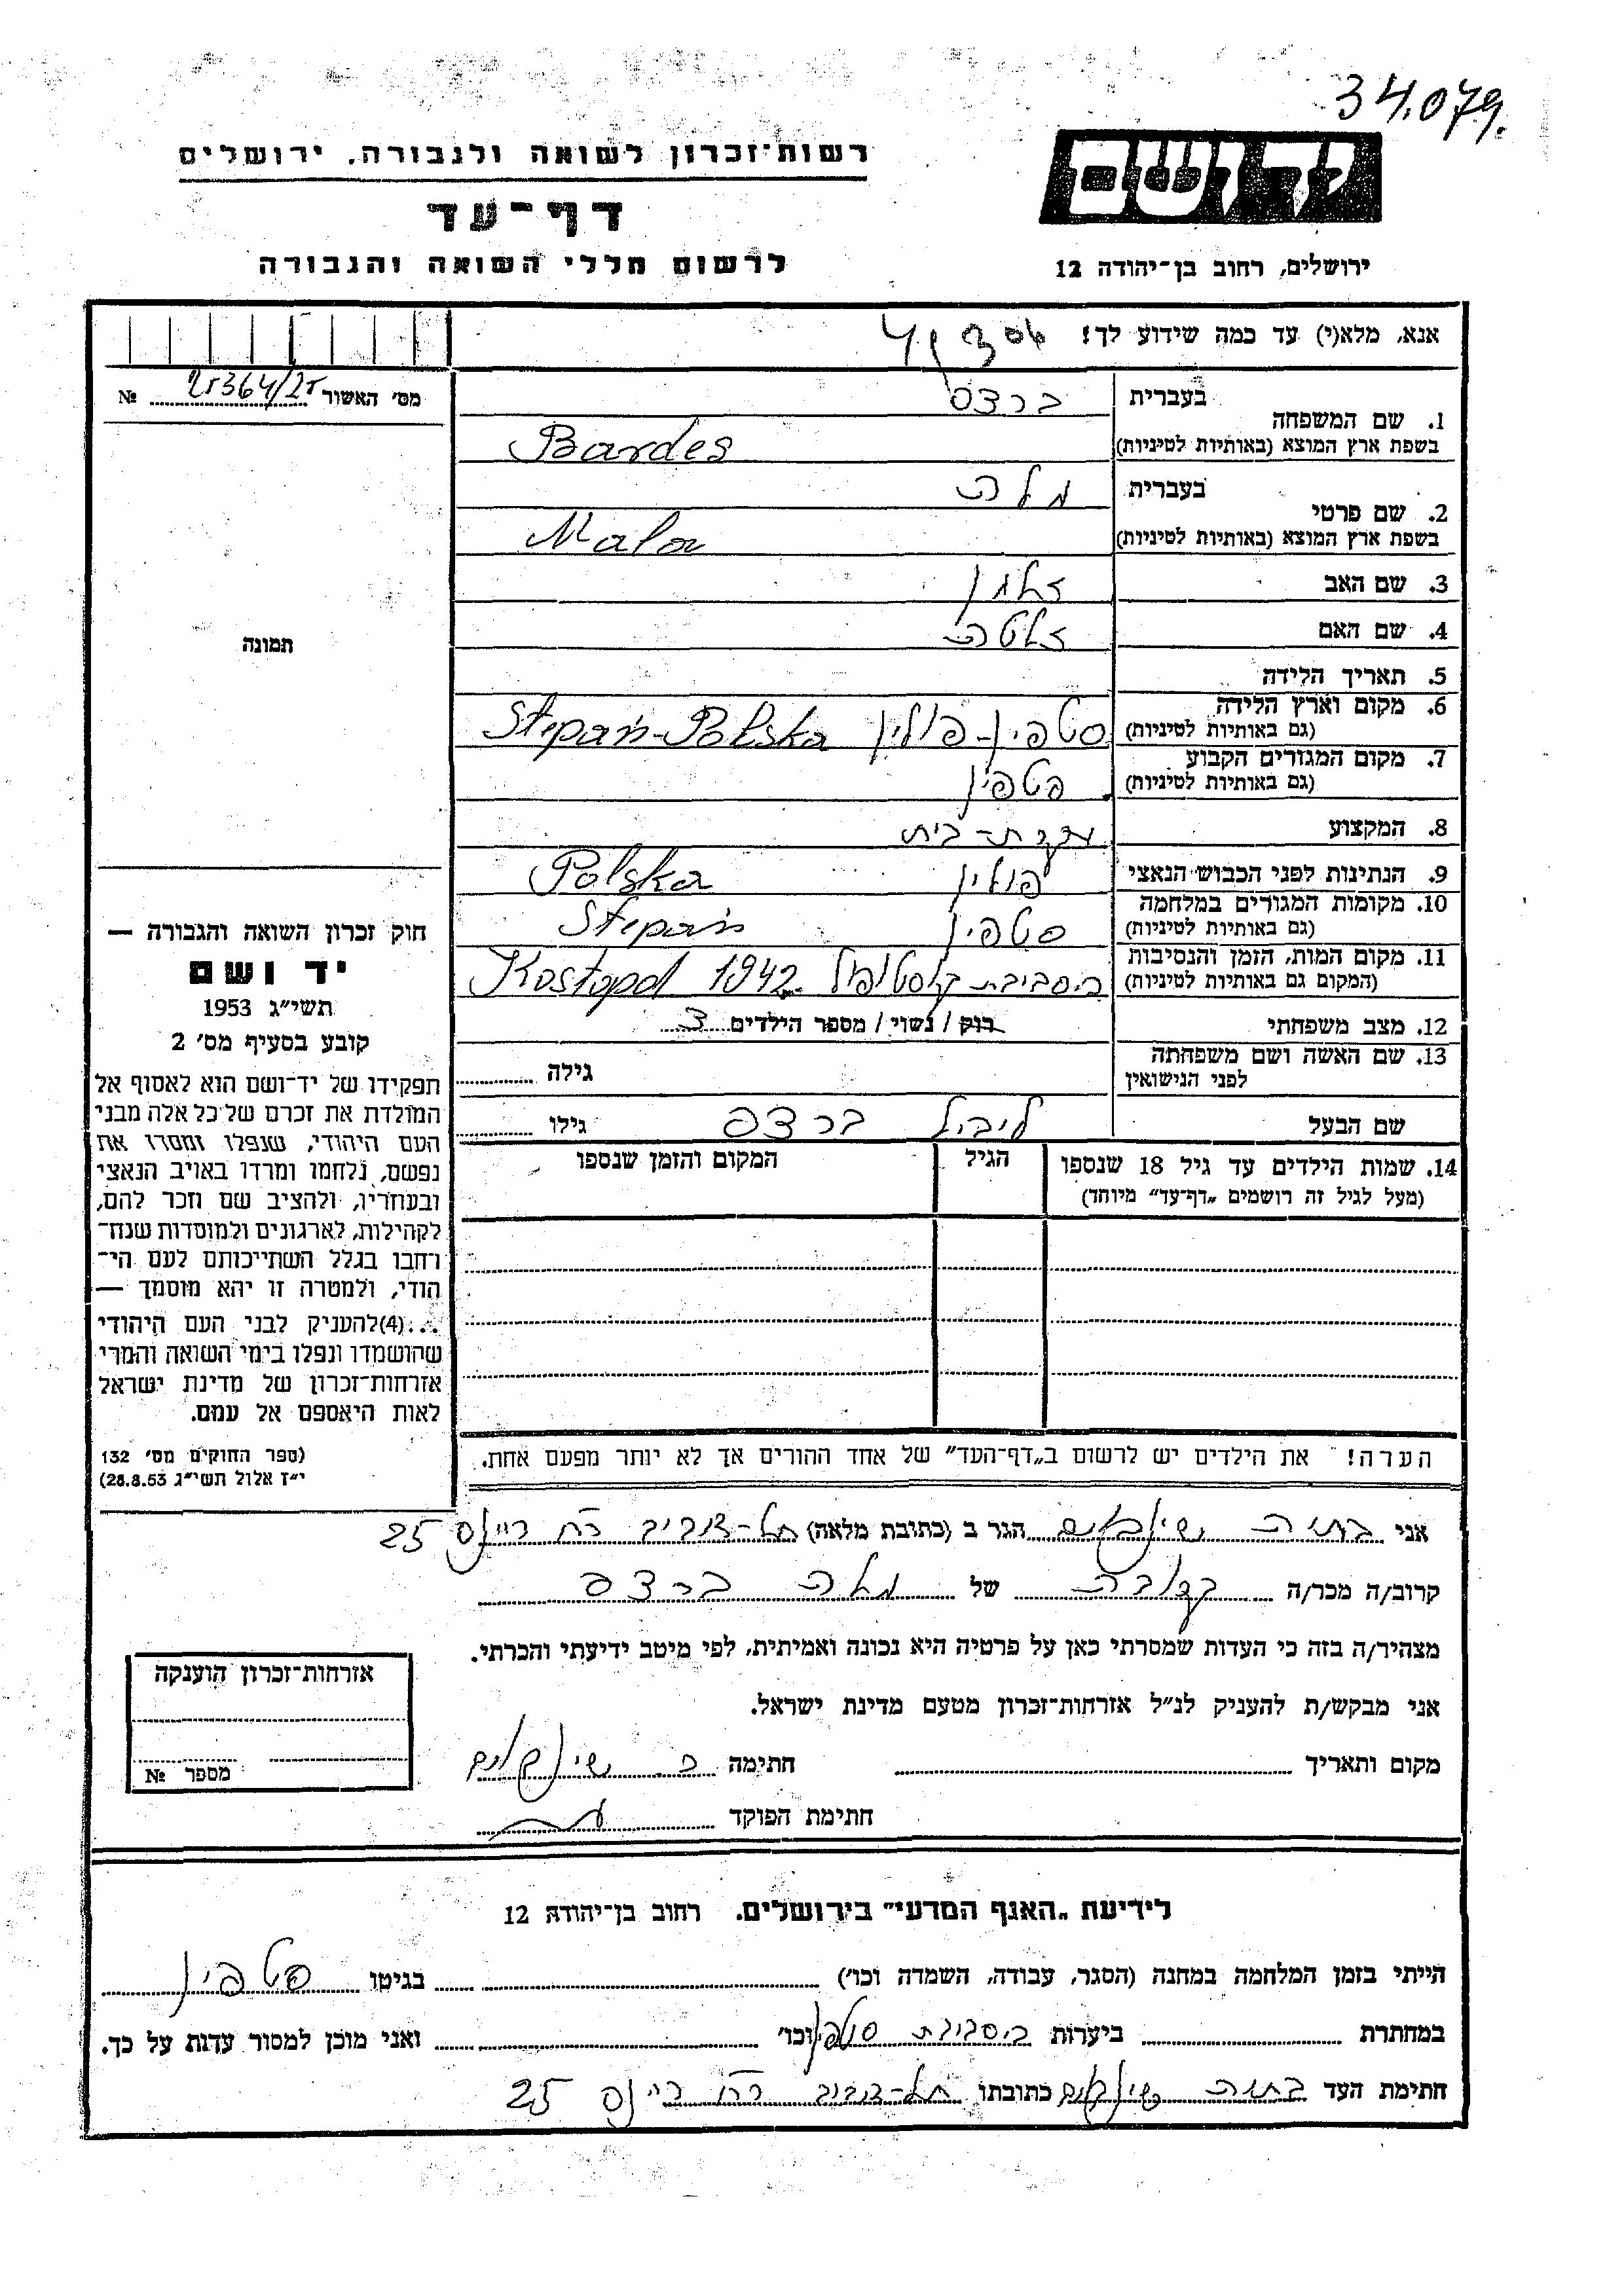 34.079.
יד ושם
רשות־זכרון לשואה ולגבורה, ירושלים
דף־עד
לרשום חללי השואה והגבורה
ירושלים, רחוב בן־יהודה 12
אנא, מלא(י) עד כמה שידוע לך!
מס׳ האשור 25364/25 №
תמונה
1. שם המשפחה
בעברית ברדס
בשפת ארץ המוצא (באותיות לטיניות) Bardes
2. שם פרטי
בעברית מלה
בשפת ארץ המוצא (באותיות לטיניות) Mala
3. שם האב זלמן
4. שם האם זלטה
5. תאריך הלידה
6. מקום וארץ הלידה
(גם באותיות לטיניות) סטפין-פולין Stepań-Polska
7. מקום המגורים הקבוע
(גם באותיות לטיניות) סטפין
8. המקצוע עקרת-בית
9. הנתינות לפני הכבוש הנאצי פולין Polska
10. מקומות המגורים במלחמה
(גם באותיות לטיניות) סטפין Stepań
11. מקום המות, הזמן והנסיבות
(המקום גם באותיות לטיניות) בסביבת קוסטופול Kostopol 1942
12. מצב משפחתי רווק / נשוי / מספר הילדים 3
13. שם האשה ושם משפחתה
לפני הנישואין
גילה
שם הבעל ליבל ברדס גילו
14. שמות הילדים עד גיל 18 שנספו
(מעל לגיל זה רושמים „דף־עד” מיוחד)
הגיל
המקום והזמן שנספו
הערה! את הילדים יש לרשום ב„דף־העד” של אחד ההורים אך לא יותר מפעם אחת.
חוק זכרון השואה והגבורה —
יד ושם
תשי״ג 1953
קובע בסעיף מס׳ 2
תפקידו של יד־ושם הוא לאסוף אל
המולדת את זכרם של כל אלה מבני
העם היהודי, שנפלו ומסרו את
נפשם, נלחמו ומרדו באויב הנאצי
ובעוזריו, ולהציב שם וזכר להם,
לקהילות, לארגונים ולמוסדות שנח־
רבו בגלל השתייכותם לעם הי־
הודי, ולמטרה זו יהא מוסמך —
...(4)להעניק לבני העם היהודי
שהושמדו ונפלו בימי השואה והמרי
אזרחות־זכרון של מדינת ישראל
לאות היאספם אל עמם.
(ספר החוקים מס׳ 132
י״ז אלול תשי״ג 28.8.53)
אני בתיה שינבוים הגר ב (כתובת מלאה) תל-אביב רח ריינס 25
קרוב/ה מכר/ה קרובה של מלה ברדס
מצהיר/ה בזה כי העדות שמסרתי כאן על פרטיה היא נכונה ואמיתית, לפי מיטב ידיעתי והכרתי.
אני מבקש/ת להעניק לנ״ל אזרחות־זכרון מטעם מדינת ישראל.
מקום ותאריך חתימה ב. שינבוים
חתימת הפוקד
אזרחות־זכרון הוענקה
מספר №
לידיעת „האגף המדעי” בירושלים, רחוב בן־יהודה 12
הייתי בזמן המלחמה במחנה (הסגר, עבודה, השמדה וכו׳) בגיטו סטפין
במחתרת ביערות בסביבת סטפין וכו׳ ואני מוכן למסור עדות על כך.
חתימת העד בתיה שינבוים כתובתו תל-אביב רח ריינס 25